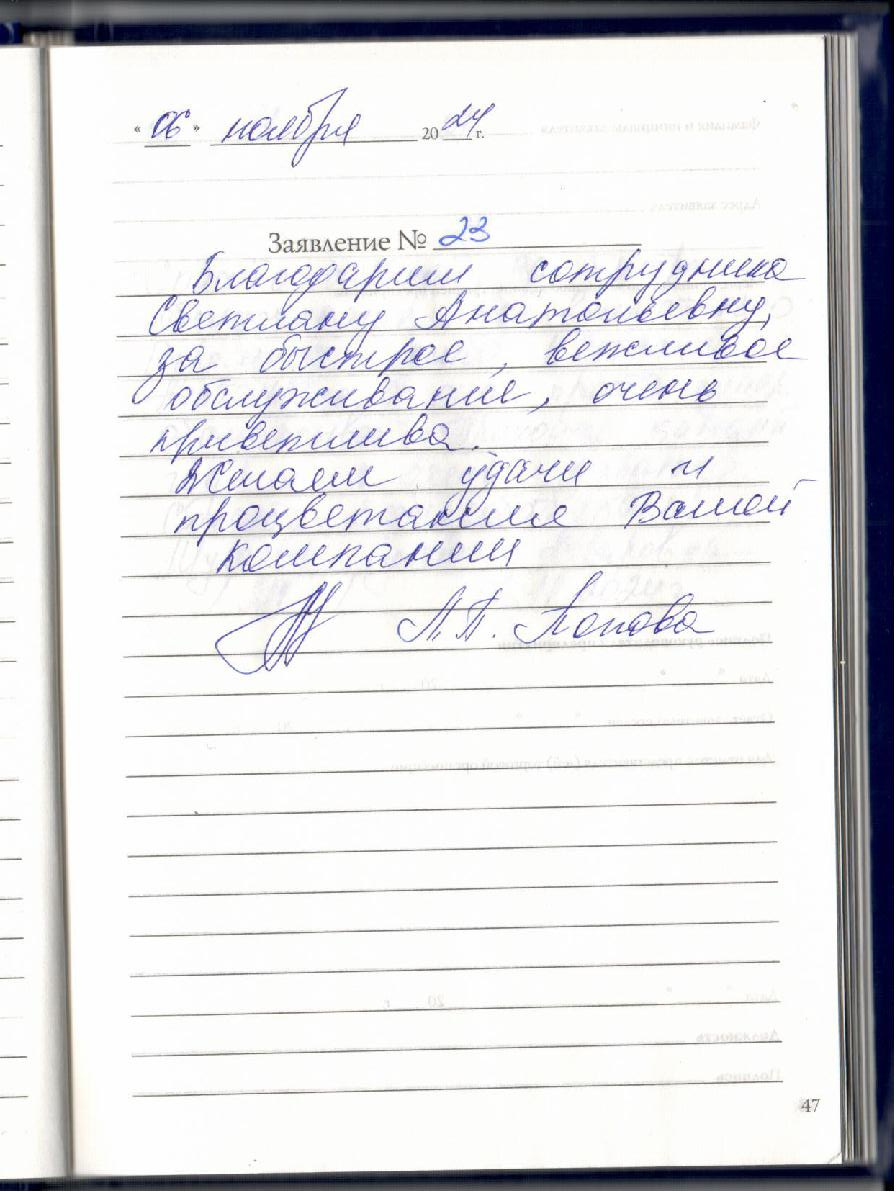 « 06 » ноября 20 24 г.
Заявление № 23
Благодарим сотрудника
Светлану Анатольевну,
за быстрое, вежливое
обслуживание, очень
приветлива.
Желаем удачи и
процветания Вашей
компании
Л.П. Попова
47